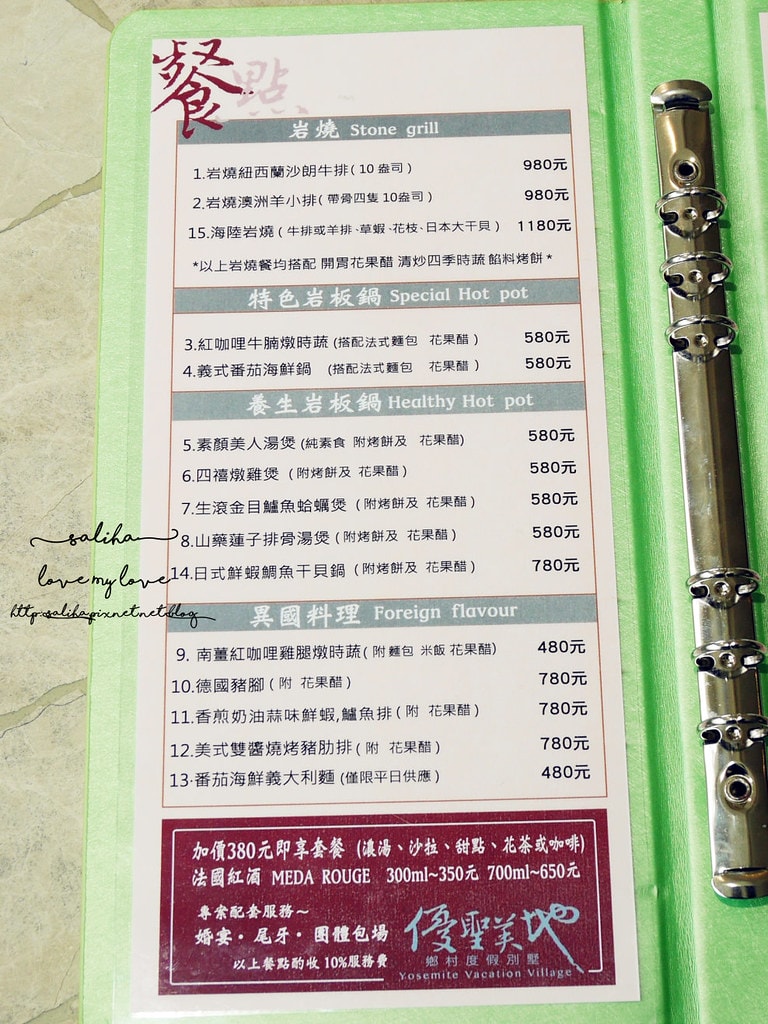 餐點
岩燒 Stone grill
1.岩燒紐西蘭沙朗牛排(10盎司) 980元
2.岩燒澳洲羊小排(帶骨四隻10盎司) 980元
15.海陸岩燒(牛排或羊排、草蝦、花枝、日本大干貝) 1180元
*以上岩燒餐均搭配 開胃花果醋 清炒四季時蔬 餡料烤餅*
特色岩板鍋 Special Hot pot
3.紅咖哩牛腩燉時蔬(搭配法式麵包 花果醋) 580元
4.義式番茄海鮮鍋 (搭配法式麵包 花果醋) 580元
養生岩板鍋 Healthy Hot pot
5.素顏美人湯煲(純素食 附烤餅及 花果醋) 580元
6.四禧燉雞煲 (附烤餅及 花果醋) 580元
7.生滾金目鱸魚蛤蠣煲 (附烤餅及 花果醋) 580元
8.山藥蓮子排骨湯煲(附烤餅及 花果醋) 580元
14.日式鮮蝦鯛魚干貝鍋 (附烤餅及 花果醋) 780元
異國料理 Foreign flavour
9. 南薑紅咖哩雞腿燉時蔬(附麵包 米飯 花果醋) 480元
10.德國豬腳(附 花果醋) 780元
11.香煎奶油蒜味鮮蝦,鱸魚排(附 花果醋) 780元
12.美式雙醬燒烤豬肋排(附 花果醋) 780元
13·番茄海鮮義大利麵(僅限平日供應) 480元
加價380元即享套餐 (濃湯、沙拉、甜點、花茶或咖啡)
法國紅酒 MEDA ROUGE 300ml~350元 700ml~650元
專案配套服務～
婚宴·尾牙·團體包場
以上餐點酌收10%服務費
優聖美地
鄉村度假別墅
Yosemite Vacation Village
saliha
love my love
http:saliha.pixnet.net/blog